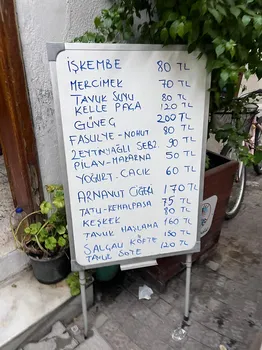 İŞKEMBE 80 TL
MERCİMEK 70 TL
TAVUK SUYU 80 TL
KELLE PAÇA 120 TL
GÜVEÇ 200 TL
FASULYE-NOHUT 80 TL
ZEYTİNYAĞLI SEBZ. 90 TL
PİLAV-MAKARNA 50 TL
YOĞURT.CACIK 60 TL
ARNAVUT CİĞERİ 170 TL
TATLI-KEMALPAŞA 75 TL
KEŞKEK 80 TL
TAVUK HAŞLAMA 160 TL
SALÇALI KÖFTE 150 TL
TAVUK SOTE 120 TL